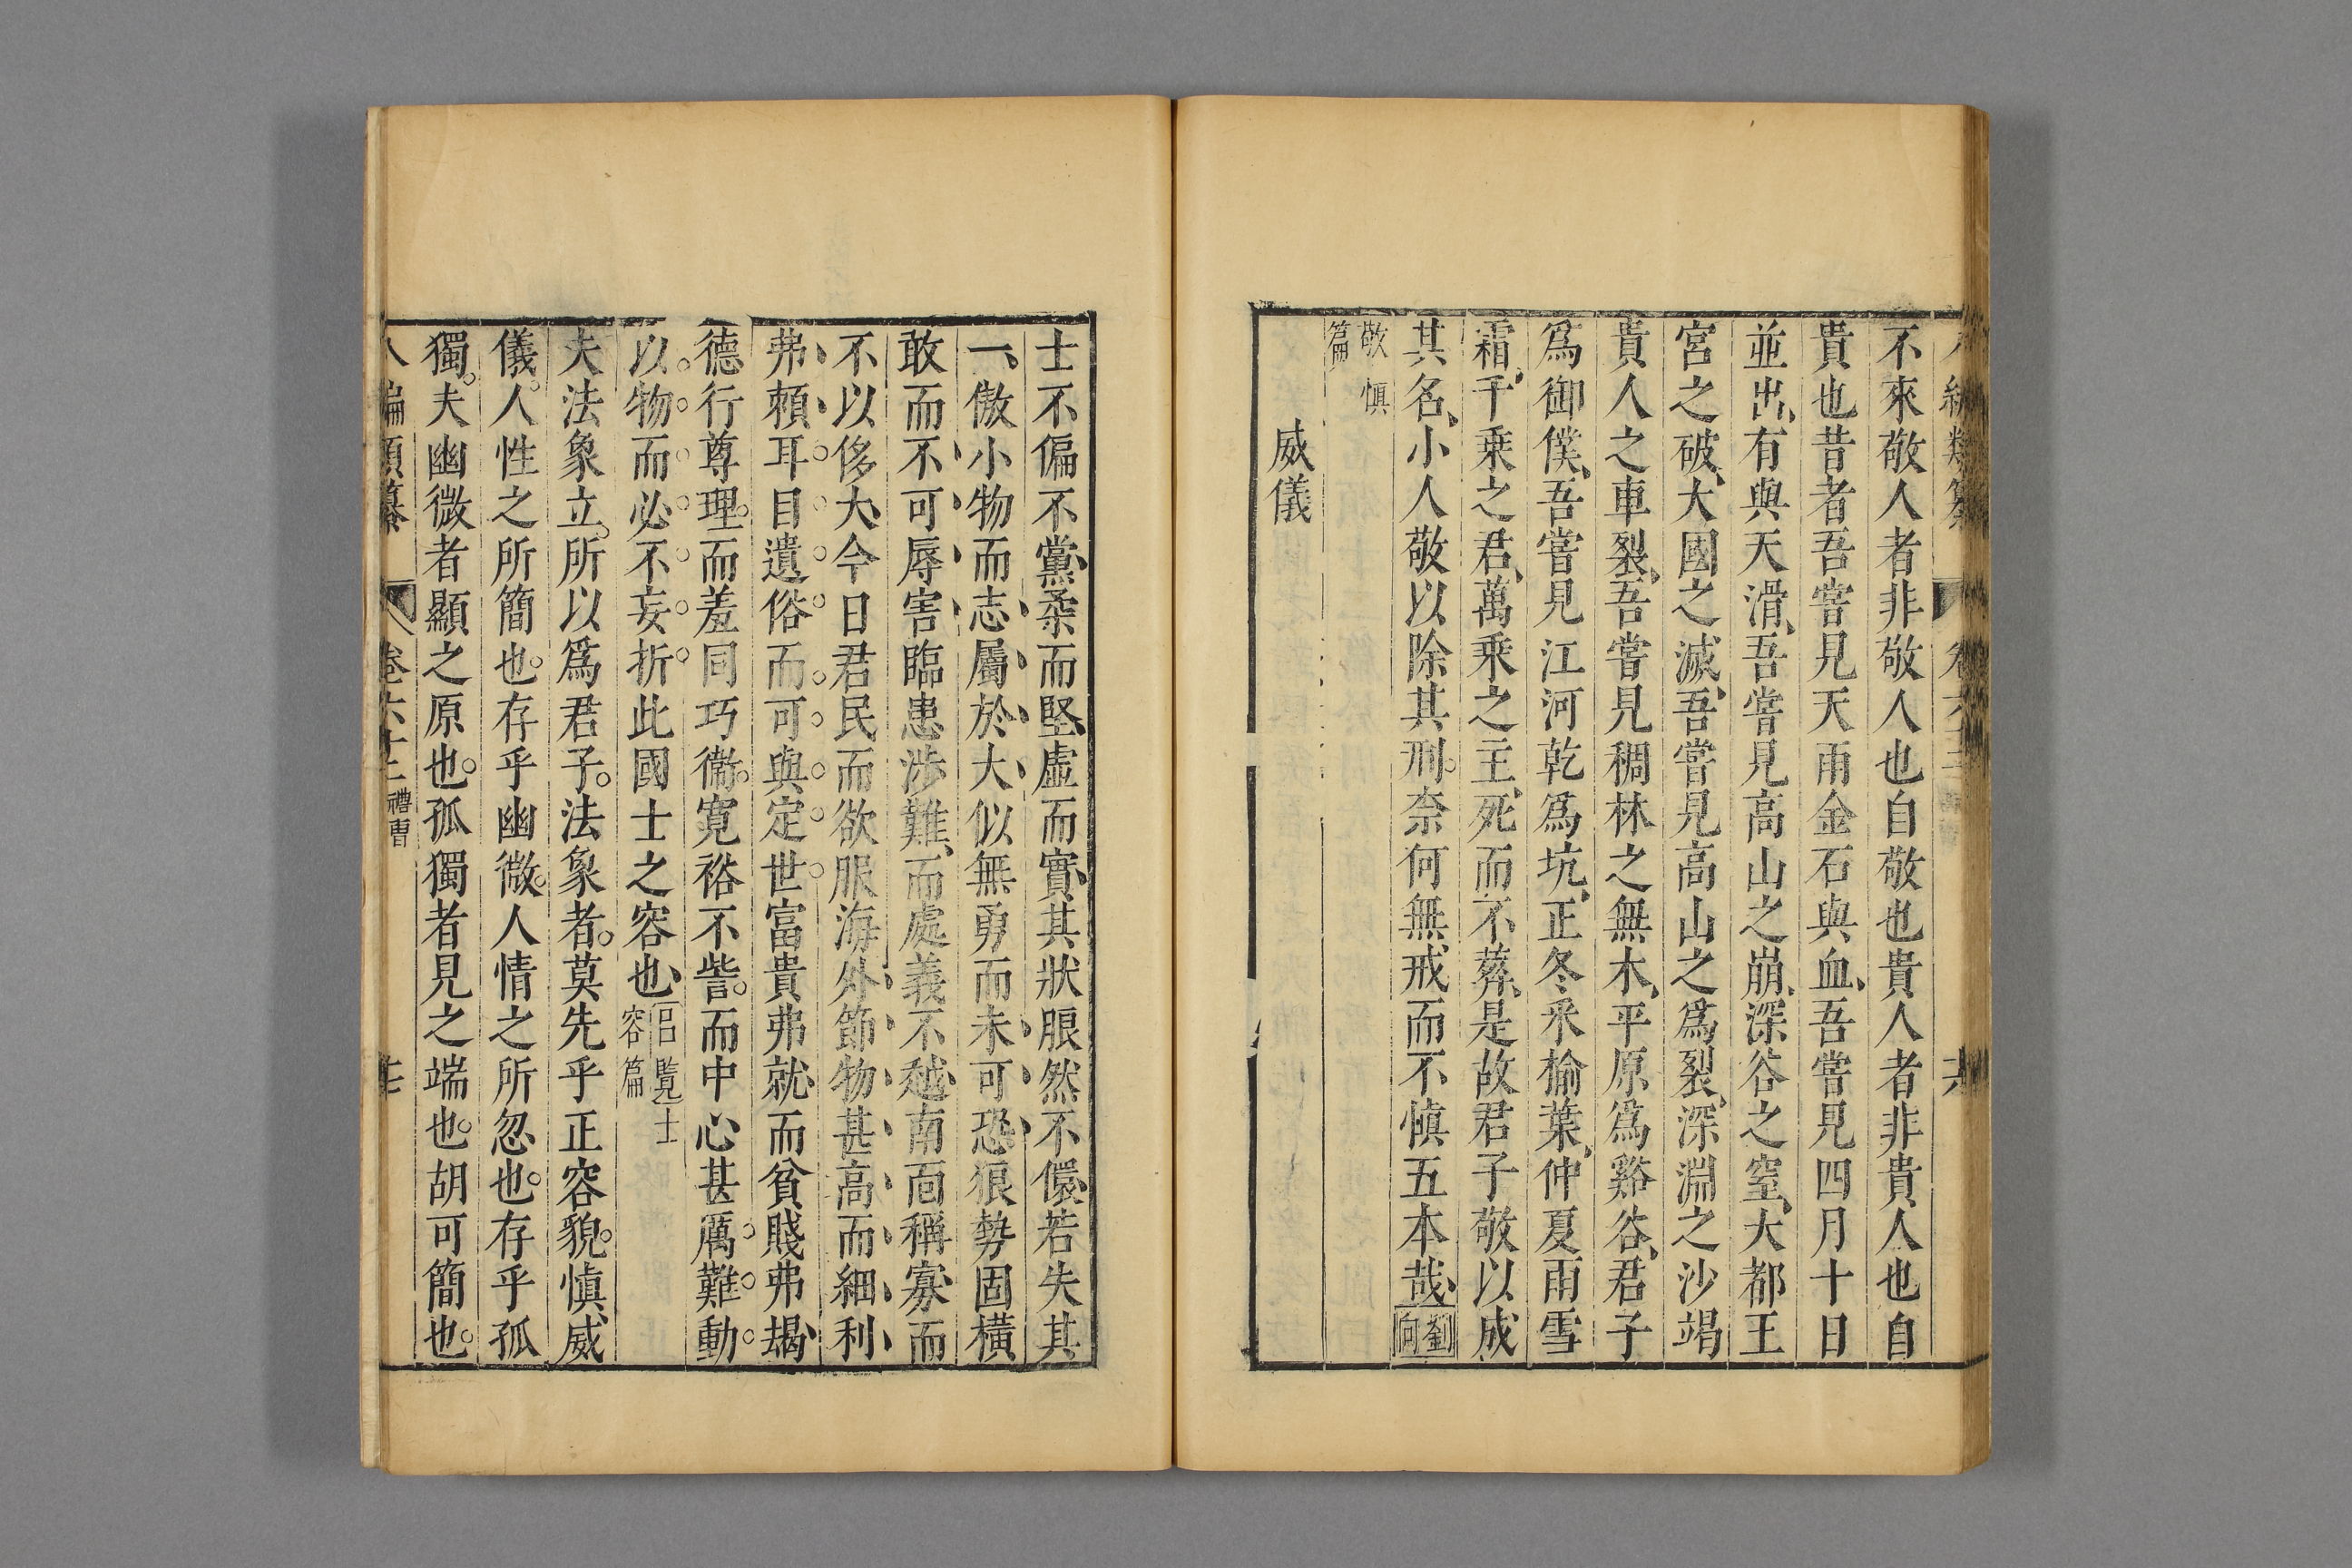 八編類纂 卷六十二 十六
不來敬人者非敬人也自敬也貴人者非貴人也自
貴也昔者吾嘗見天雨金石與血吾嘗見四月十日
並出有與天滑吾嘗見高山之崩深谷之窒大都王
宮之破大國之滅吾嘗見高山之爲裂深淵之沙竭
貴人之車裂吾嘗見稠林之無木平原爲谿谷君子
爲御僕吾嘗見江河乾爲坑正冬釆榆葉仲夏雨雪
霜千乗之君萬乘之主死而不葬是故君子敬以成
其名小人敬以除其刑奈何無戒而不慎五本哉劉向
敬慎篇
威儀
士不偏不黨柔而堅虛而實其狀朖然不儇若失其
一傲小物而志屬於大似無勇而未可恐狼勢固橫
敢而不可辱害臨患涉難而處義不越南面稱寡而
不以侈大今日君民而欲服海外節物甚高而細利
弗賴耳目遺俗而可與定世富貴弗就而貧賤弗朅
德行尊理而羞同巧衞寛裕不訾而中心甚厲難動
以物而必不妄折此國士之容也呂覽士容篇
夫法象立所以爲君子法象者莫先乎正容貌慎威
儀人性之所簡也存乎幽微人情之所忽也存乎孤
獨夫幽微者顯之原也孤獨者見之端也胡可簡也
八編類纂 卷六十二 禮曹 十七